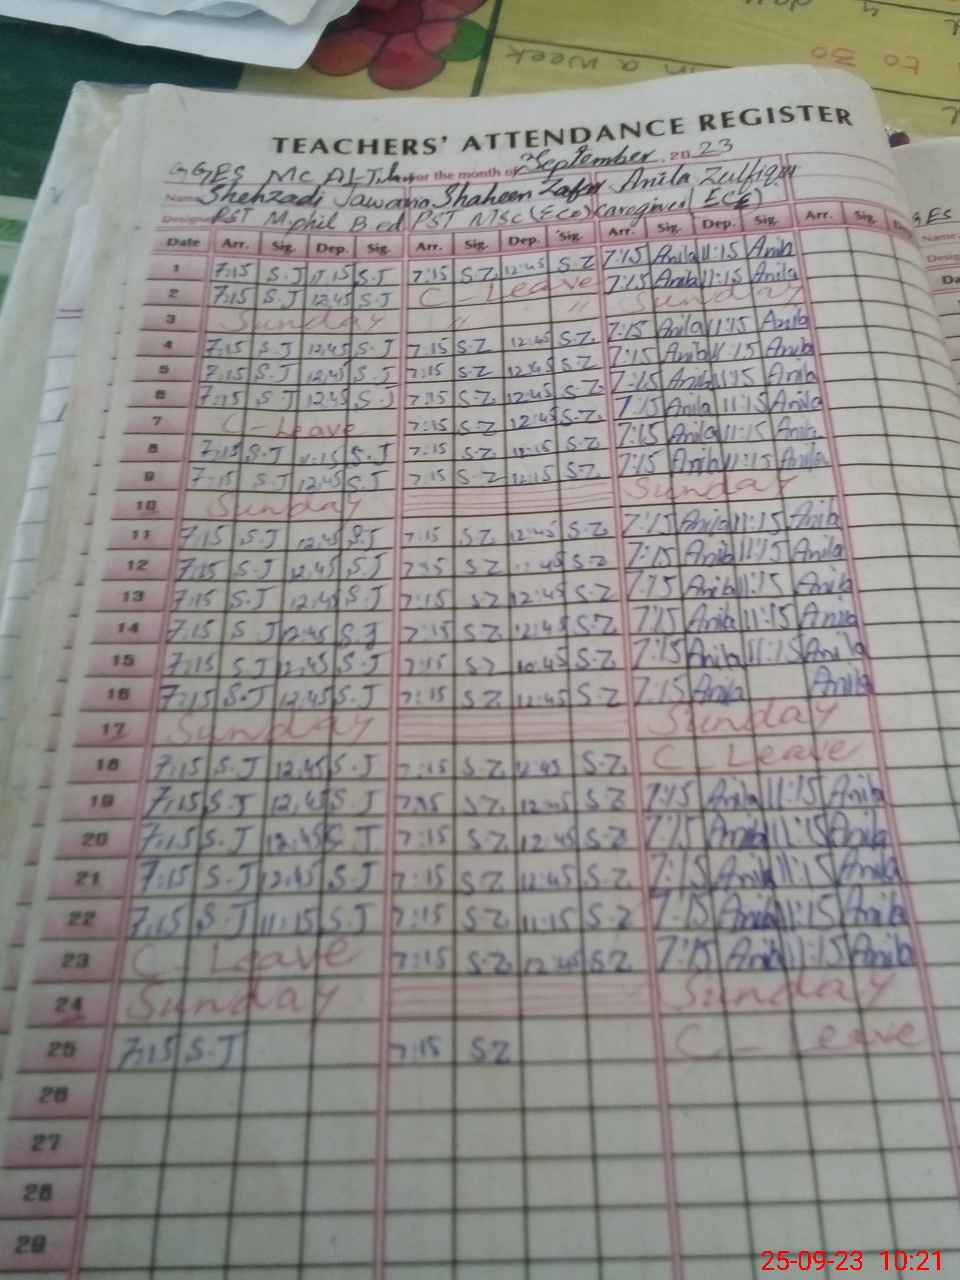 in a week
to 30
TEACHERS' ATTENDANCE REGISTER
GGES MC for the month of September 2023
Name Shehzadi Jawana Shaheen Zafar Anila Zulfiqar
PST M.phil B.ed PST MSc (Eco) Caregiver (ECE)
Date Arr. Sig. Dep. Sig. Arr. Sig. Dep. Sig. Arr. Sig. Dep. Sig. Arr. Sig.
1 7:15 S.J 11:15 S.J 7:15 S.Z 12:45 S.Z 7:15 Anila 11:15 Anila
2 7:15 S.J 12:45 S.J C - Leave 7:15 Anila 11:15 Anila
3 Sunday " " Sunday
4 7:15 S.J 12:45 S.J 7:15 S.Z 12:45 S.Z. 7:15 Anila 11:15 Anila
5 7:15 S.J 12:45 S.J 7:15 S.Z 12:45 S.Z 7:15 Anila 11:15 Anila
6 7:15 S.J 12:45 S.J 7:15 S.Z. 12:45 S.Z. 7:15 Anila 11:15 Anila
7 C - Leave 7:15 S.Z 12:45 S.Z. 7:15 Anila 11:15 Anila
8 7:15 S.J 11:15 S.J 7:15 S.Z. S.Z 7:15 Anila 11:15 Anila
9 7:15 S.J 12:45 S.J 7:15 S.Z SZ. 7:15 Anila 11:15 Anila
10 Sunday Sunday
11 7:15 S.J 12:45 S.J 7:15 S.Z. 12:45 S.Z. 7:15 Anila 11:15 Anila
12 7:15 S.J 12:45 S.J 7:15 SZ 45 S.Z 7:15 Anila 11:15 Anila
13 7:15 S.J 12:45 S.J 7:15 SZ 12:45 S.Z 7:15 Anila 11:15 Anila
14 7:15 S.J 12:45 S.J 7:15 S.Z. 12:45 S.Z. 7:15 Anila 11:15 Anila
15 7:15 S.J 12:45 S.J 7:15 SZ S.Z 7:15 Anila 11:15 Anila
16 7:15 S.J 12:45 S.J 7:15 S.Z. 12:45 S.Z 7:15 Anila Anila
17 Sunday Sunday
18 7:15 S.J 12:45 S.J 7:15 S.Z. 12:45 S.Z. C - Leave
19 7:15 S.J 12:45 S.J 7:15 S.Z. 12:45 S.Z 7:15 Anila 11:15 Anila
20 7:15 S.J 12:45 S.J 7:15 S.Z 12:45 S.Z 7:15 Anila 11:15 Anila
21 7:15 S.J 12:45 S.J 7:15 S.Z 12:45 S.Z. 7:15 Anila 11:15 Anila
22 7:15 S.J 11:15 S.J 7:15 S.Z. 11:15 S.Z 7:15 Anila 11:15 Anila
23 C - Leave 7:15 S.Z. 12:45 S.Z 7:15 Anila 11:15 Anila
24 Sunday Sunday
25 7:15 S.J 7:15 SZ C - Leave
26
27
28
29
25-09-23 10:21